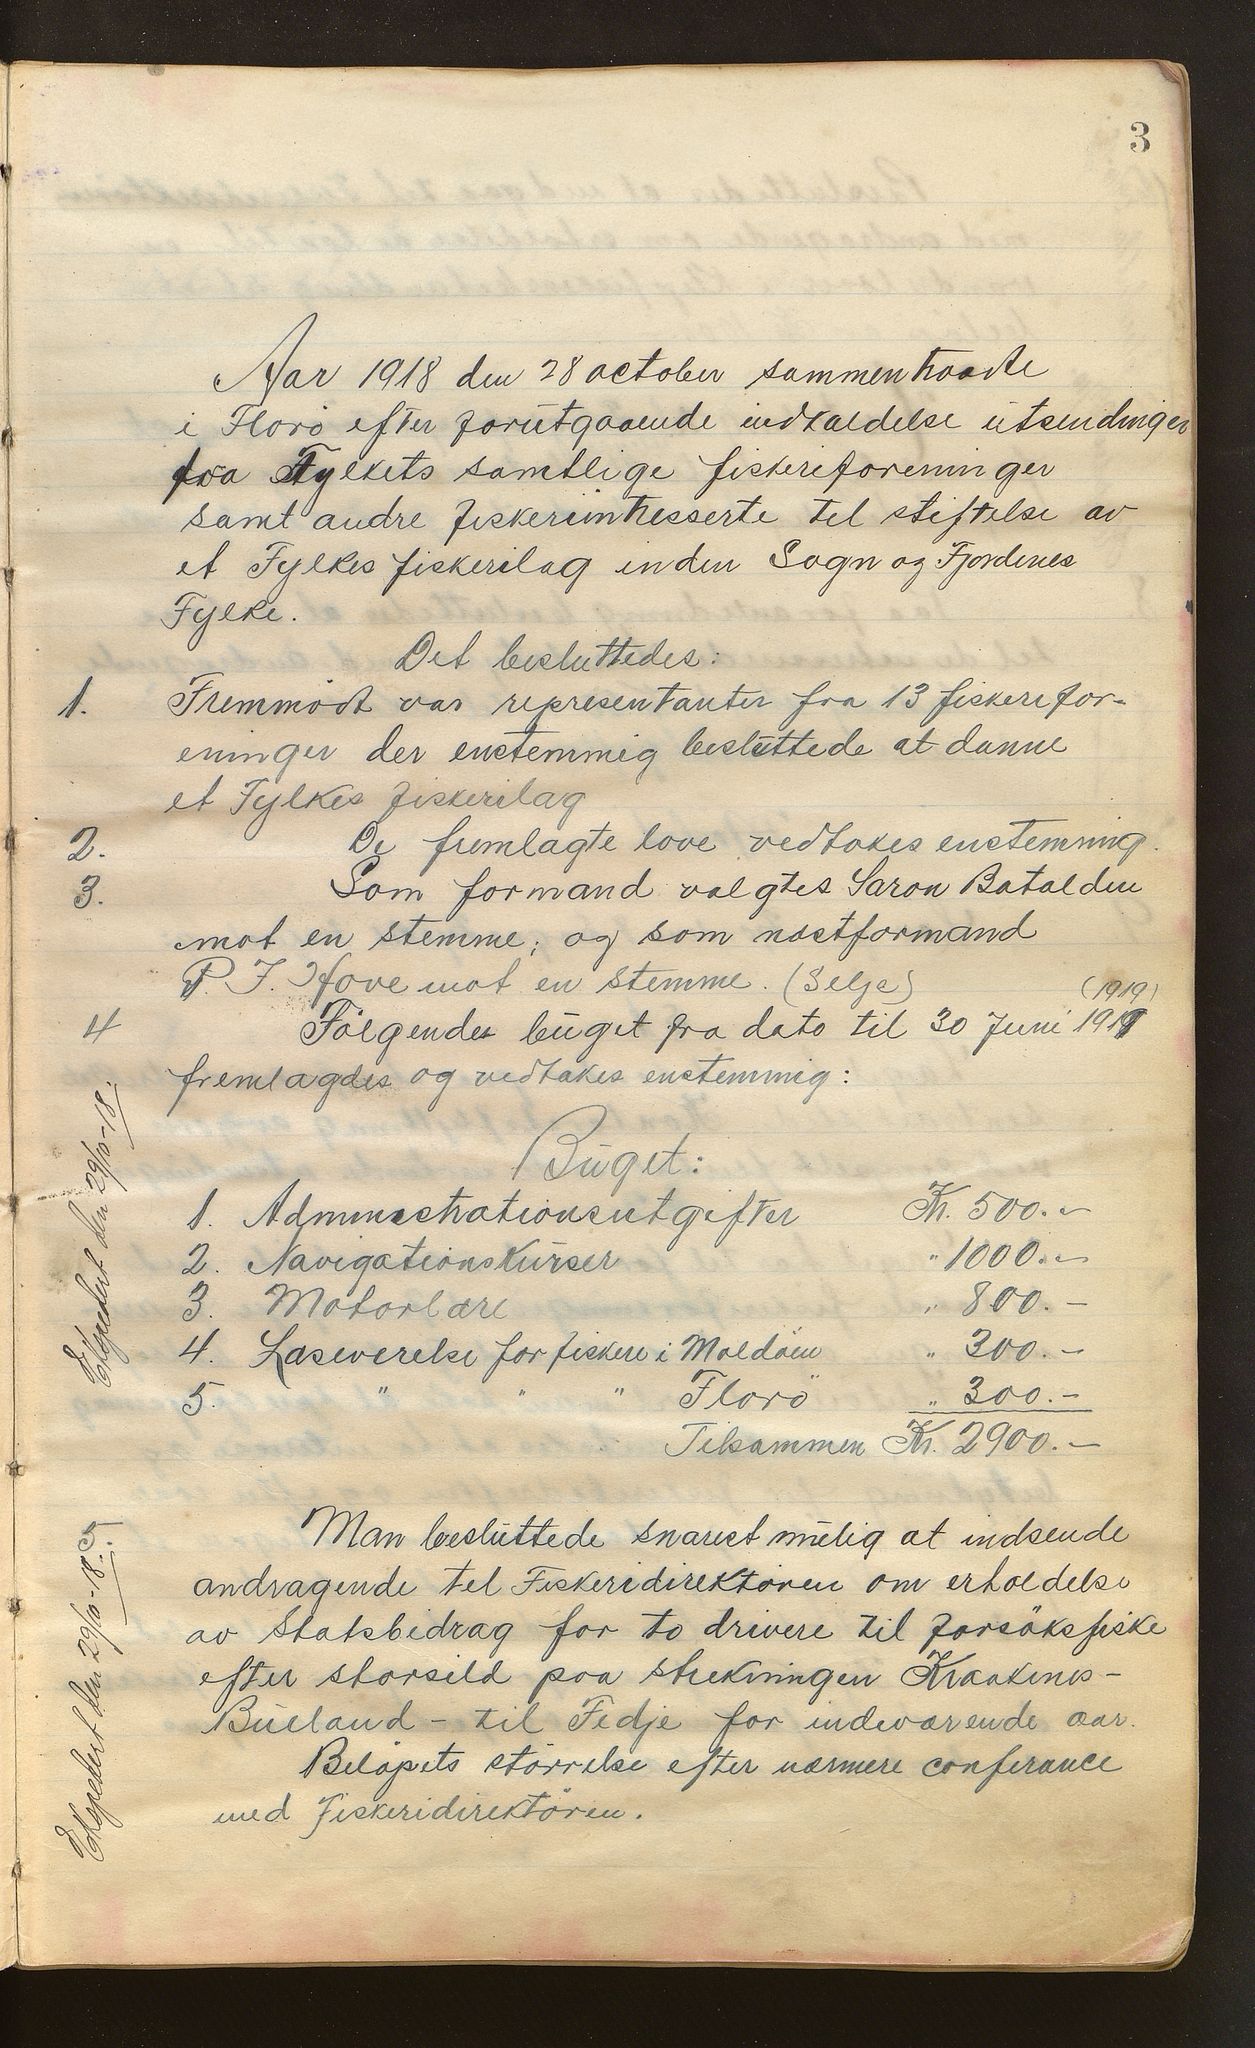 3
Aar 1918 den 28 october sammentraadte
i Florö efter forutgaaende indkaldelse utsendinger
fra Fylkets samtlige fiskeriforeninger
samt andre fiskeriintresserte til stiftelse av
et Fylkes fiskerilag inden Sogn og Fjordenes
Fylke.
Det besluttedes:
1. Fremmödt var representanter fra 13 fiskerifor-
eninger der enstemmig besluttede at danne
et Fylkes fiskerilag
2. De fremlagte love vedtokes enstemmig.
3. Som formand valgtes Saron Batalden
mot en stemme; og som næstformand
P. J. Hove mot en stemme. (Selje)
(1919)
4 Følgende buget fra dato til 30 Juni 1919
fremlagdes og vedtokes enstemmig:
Ekspedert den 29/10-18.
Buget:
1. Administrationsutgifter Kr. 500.-
2. Navigationskurser " 1000.-
3. Motorlære " 800.-
4. Læseverelse for fiskere i Moldöen " 300.-
5. " " " Florö " 300.-
Tilsammen Kr. 2900.-
5. Man besluttede snarest mulig at indsende
andragende til Fiskeridirektören om erholdelse
av Statsbidrag for to drivere til forsöksfiske
efter storsild paa strekningen Kraakenes-
Bueland - til Fedje for indeværende aar.
Belöpets störrelse efter nærmere conferance
med fiskeridirektören.
Ekspedert den 29/10-18.